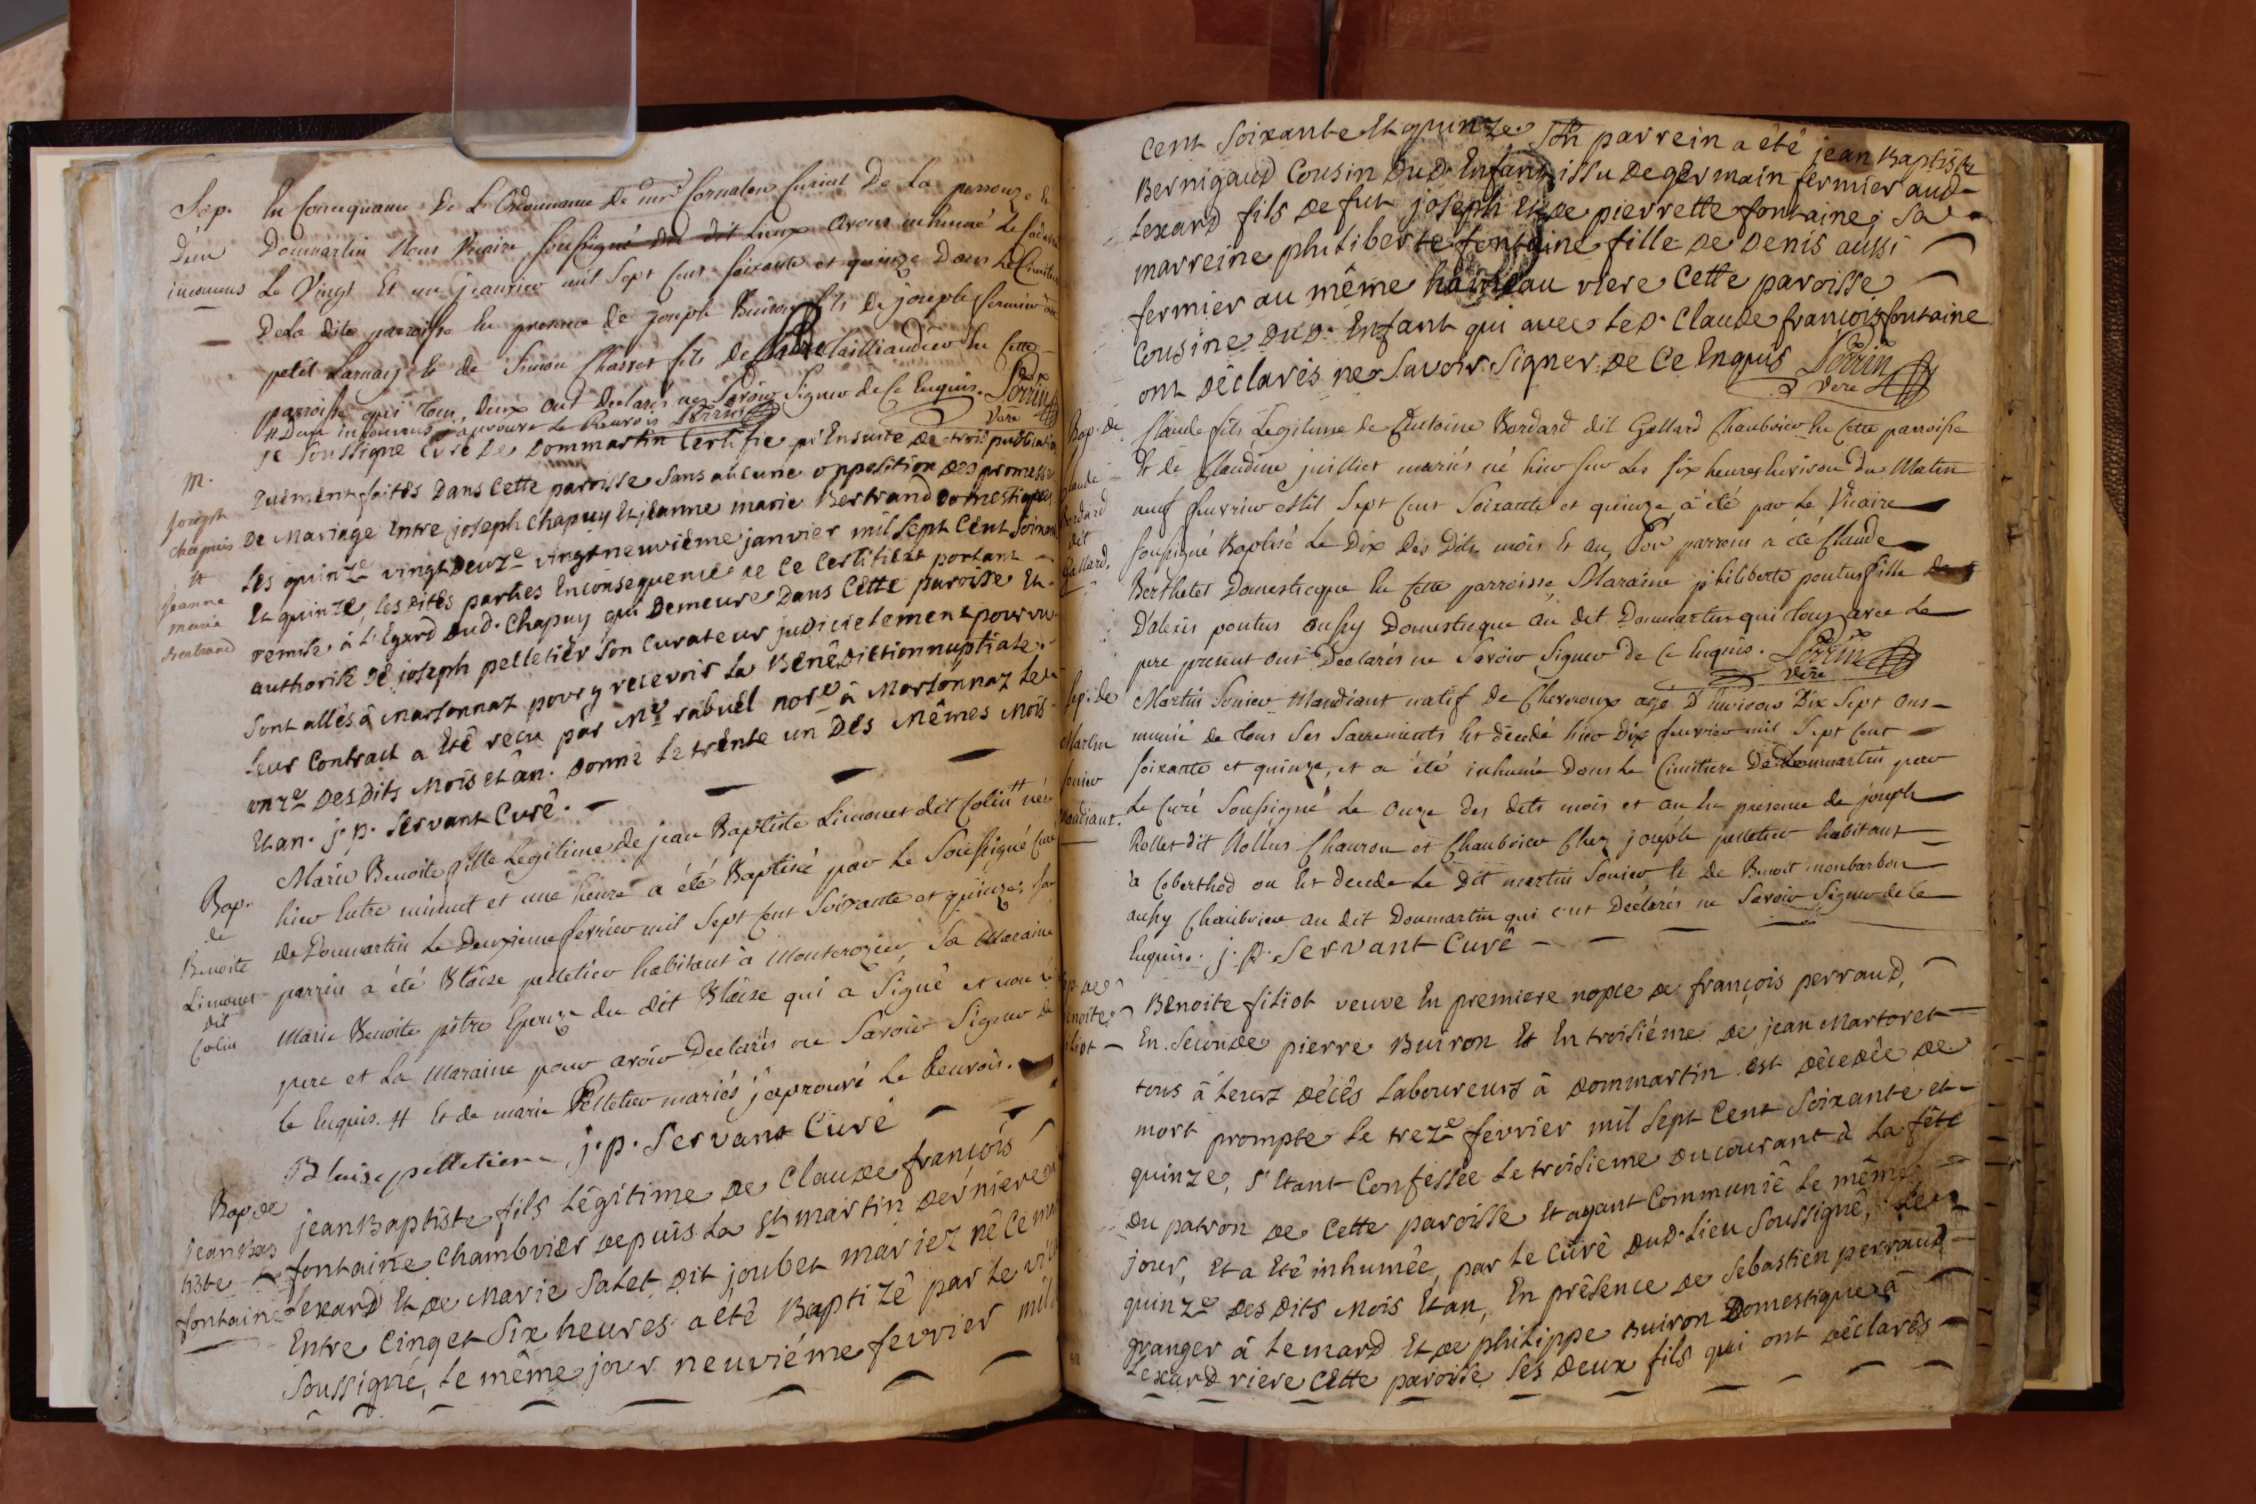 Sép.
d'un
inconnus
En Consequance de L'Ordonnance de mr Cornaton Curial De La
Dommartin Nous Vicaire soussigné du dit Lieux avons inhumé Le
Le Vingt Et un jeanvier mil Sept Cent soixante et quinze Dans Le
De La dite parroisse En presence de joseph Buiron fils de joseph fermier
petit Larnay Et de Simon Chasset fils De Taillandier En Cette
parroisse qui Tous Deux ont Declarés ne Savoir Signer de Ce Enquis. Perrin
# D'un inconnus j'aprouve Le Renvois Perrin Vere
M.
joseph
chapuis
et
jeanne
marie
Bertrand
je soussigné Curé De Dommartin Certifie qu'Ensuite De trois publications
Duement faites Dans Cette paroisse Sans aucune opposition Des promesses
De Mariage Entre joseph Chapuy Et jeanne marie Bertrand Domestiques
Les quinze vingt Deuze vingt neuvième janvier mil Sept Cent Soixante
Et quinze, Les dites parties En Consequence de Ce Certificat portant
remise à L'Egard Dud. Chapuy qui Demeure Dans Cette paroisse Et
authorisé De joseph pelletier Son Curateur judicielement pourvu
Sont allés à Marsonnaz pour y recevoir La Bénédiction nuptiale.
Leur Contract a Eté reçu par Me rabuel nore à Marsonnaz Le
onze Des dits Mois et ân. Donné Le trente un Des Mêmes Mois
Et an. j. p. Servant Curé.
Bap.
de
Benoite
Limonet
dit
Colin
Marie Benoite fille Legitime de jean Baptiste Limonet dit Colin # née
hier Entre minuit et une heure a été Baptisé par Le Soussigné Curé
de Dommartin Le Deuxieme fevrier mil Sept Cent Soixante et quinze, Son
parrin a été Blaise pelletier habitant à Montcrozier, Sa Maraine
Marie Benoite pitre Epouze du dit Blaise qui a Signé et non Le
pere et La Maraine pour avoir Declarés ne Savoir Signer de
Ce Enquis. # Et de marie Pelletier mariés j'aprouvé Le Renvois.
Blaise pelletier j. p. Servant Curé
Bap. De
jean Bap
tiste
fontaine
jean Baptiste fils Légitime De Claude françois
fontaine Chambrier Depuis La St martin Derniere
Lexard Et De Marie Salet Dit joubet mariez né Ce
Entre Cinq et Six heures a eté Baptizé par Le
Soussigné, Le même jour neuviéme fevrier mil
Cent Soixante Et quinze. Son parrein a été jean Baptiste
Bernigaud Cousin Dud. Enfant issu De germain fermier aud.
Lexard fils De fut joseph Et De pierrette fontaine, Sa
marreine philiberte fontaine fille De Denis aussi
fermier au même hameau riere Cette paroisse
Cousine Dud. Enfant qui avec Led. Claude françois fontaine
ont Déclarés ne Savoir Signer De Ce Enquis Perrin
Vere
Bap. de
Claude
Bordard
dit
Gallard.
Claude fils Legitime de Antoine Bordard dit Gallard Chambrier En Cette parroisse
Et de Claudine juillier mariés né hier sur Les six heures Environ Du Matin
neuf fevrier Mil Sept Cent Soixante et quinze a été par Le Vicaire
soussigné Baptisé Le Dix Des Dits mois Et an, Son parrein a été Claude
Berthelet Domesticque En Cette parroisse, Maraine philiberte pontus fille
D'alexis pontus aussy Domesticque au dit Dommartin qui Tous avec Le
pere present ont Declarés ne Savoir Signer de Ce Enquis. Perrin
Vere
Sep. de
Martin
Sonier
Mandiant.
Martin Sonier Mandiant natif de Cherroux age D'Environ Dix Sept ans
munie de Tous Ses Sacrements Est décedé hier Dix fevrier mil Sept Cent
soixante et quinze, et a été inhumé Dans Le Cimitiere De Dommartin par
Le Curé Soussigné Le onze des dits mois et an En presence de joseph
Rollet dit Rollus Charron et Chambrier Chez joseph pelletier habitant
à Coberthod ou Est Decedé Le Dit martin Sonier Et de Benoit monbarbon
aussy Chambrier au dit Dommartin qui ont Déclarés ne Savoir Signer de Ce
Enquis. j. p. Servant Curé
Benoite filiot veuve En premiere nopce De françois perraud,
En Seconde pierre Buiron Et En troisiéme De jean Martoret
tous à Leurs décés Laboureurs à Dommartin est Décedée De
mort prompte Le treze fevrier mil Sept Cent Soixante et
quinze, S'Etant Confessée Le troisieme Ducourant à La fête
Du patron De Cette paroisse Et ayant Communié Le même
jour, Et a Eté inhumée par Le Curé Dud. Lieu Soussigné, Le
quinze Des dits Mois Et an, En présence De Sebastien perraud
granger à Lemard Et De philippe Buiron Domestique à
Lexard riere Cette paroisse Ses Deux fils qui ont Déclarés